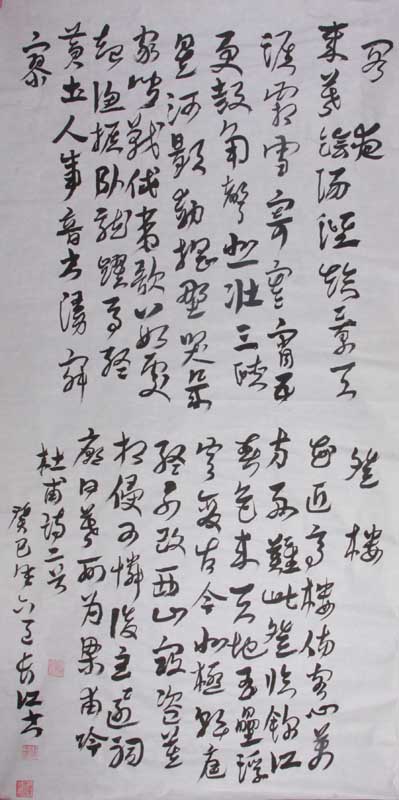 阁夜
歲暮陰陽催短景天
涯霜雪霽寒宵五
更鼓角聲悲壮三峽
星河影動摇野哭幾
家聞戰伐夷歌數處
起漁樵卧龍躍馬終
黄土人事音書漫寂
寥
登樓
花近高樓傷客心萬
方多難此登臨錦江
春色來天地玉壘浮
雲變古今北極朝庭
終不改西山寇盗莫
相侵可憐後主還祠
廟日暮聊為梁甫吟
杜甫詩二首
癸巳年六月長江書